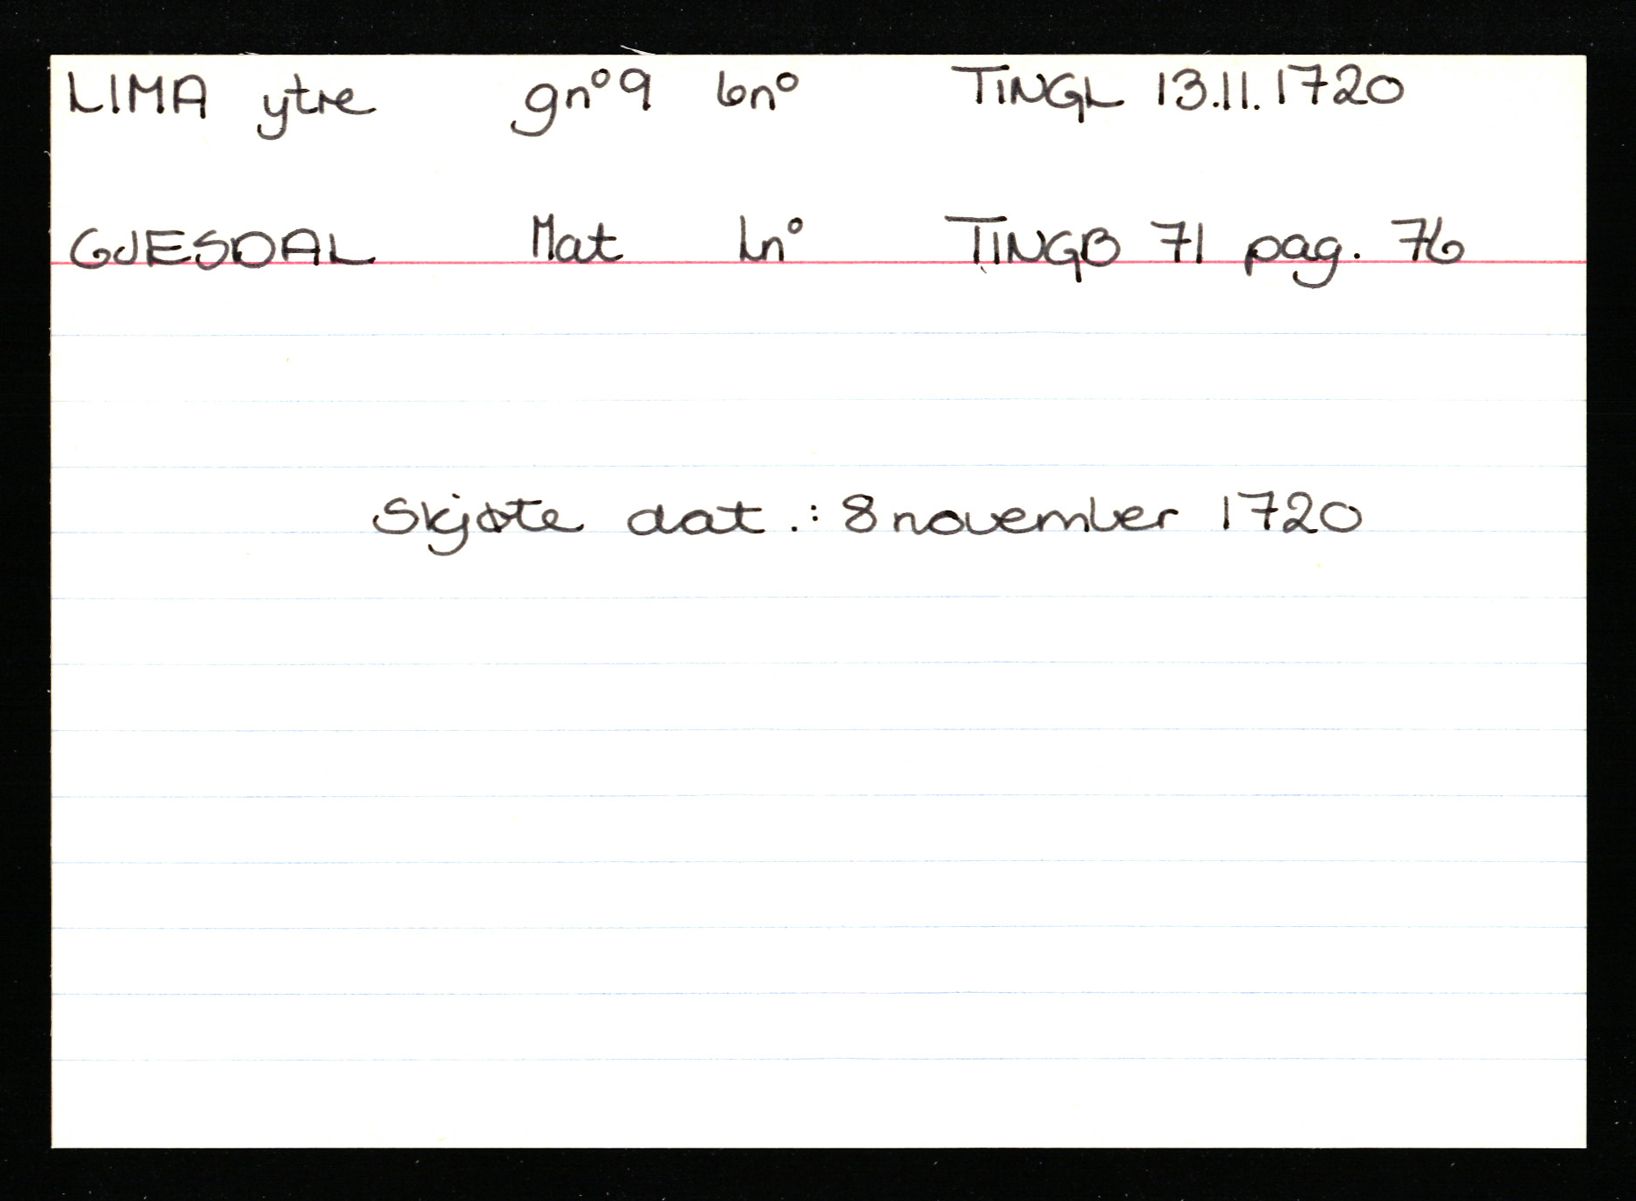 LIMA ytre gn° 9 bn° TINGL 13.11.1720
GJESDAL Mat Ln° TINGB 71 pag. 76
Skjøte dat.: 8 november 1720